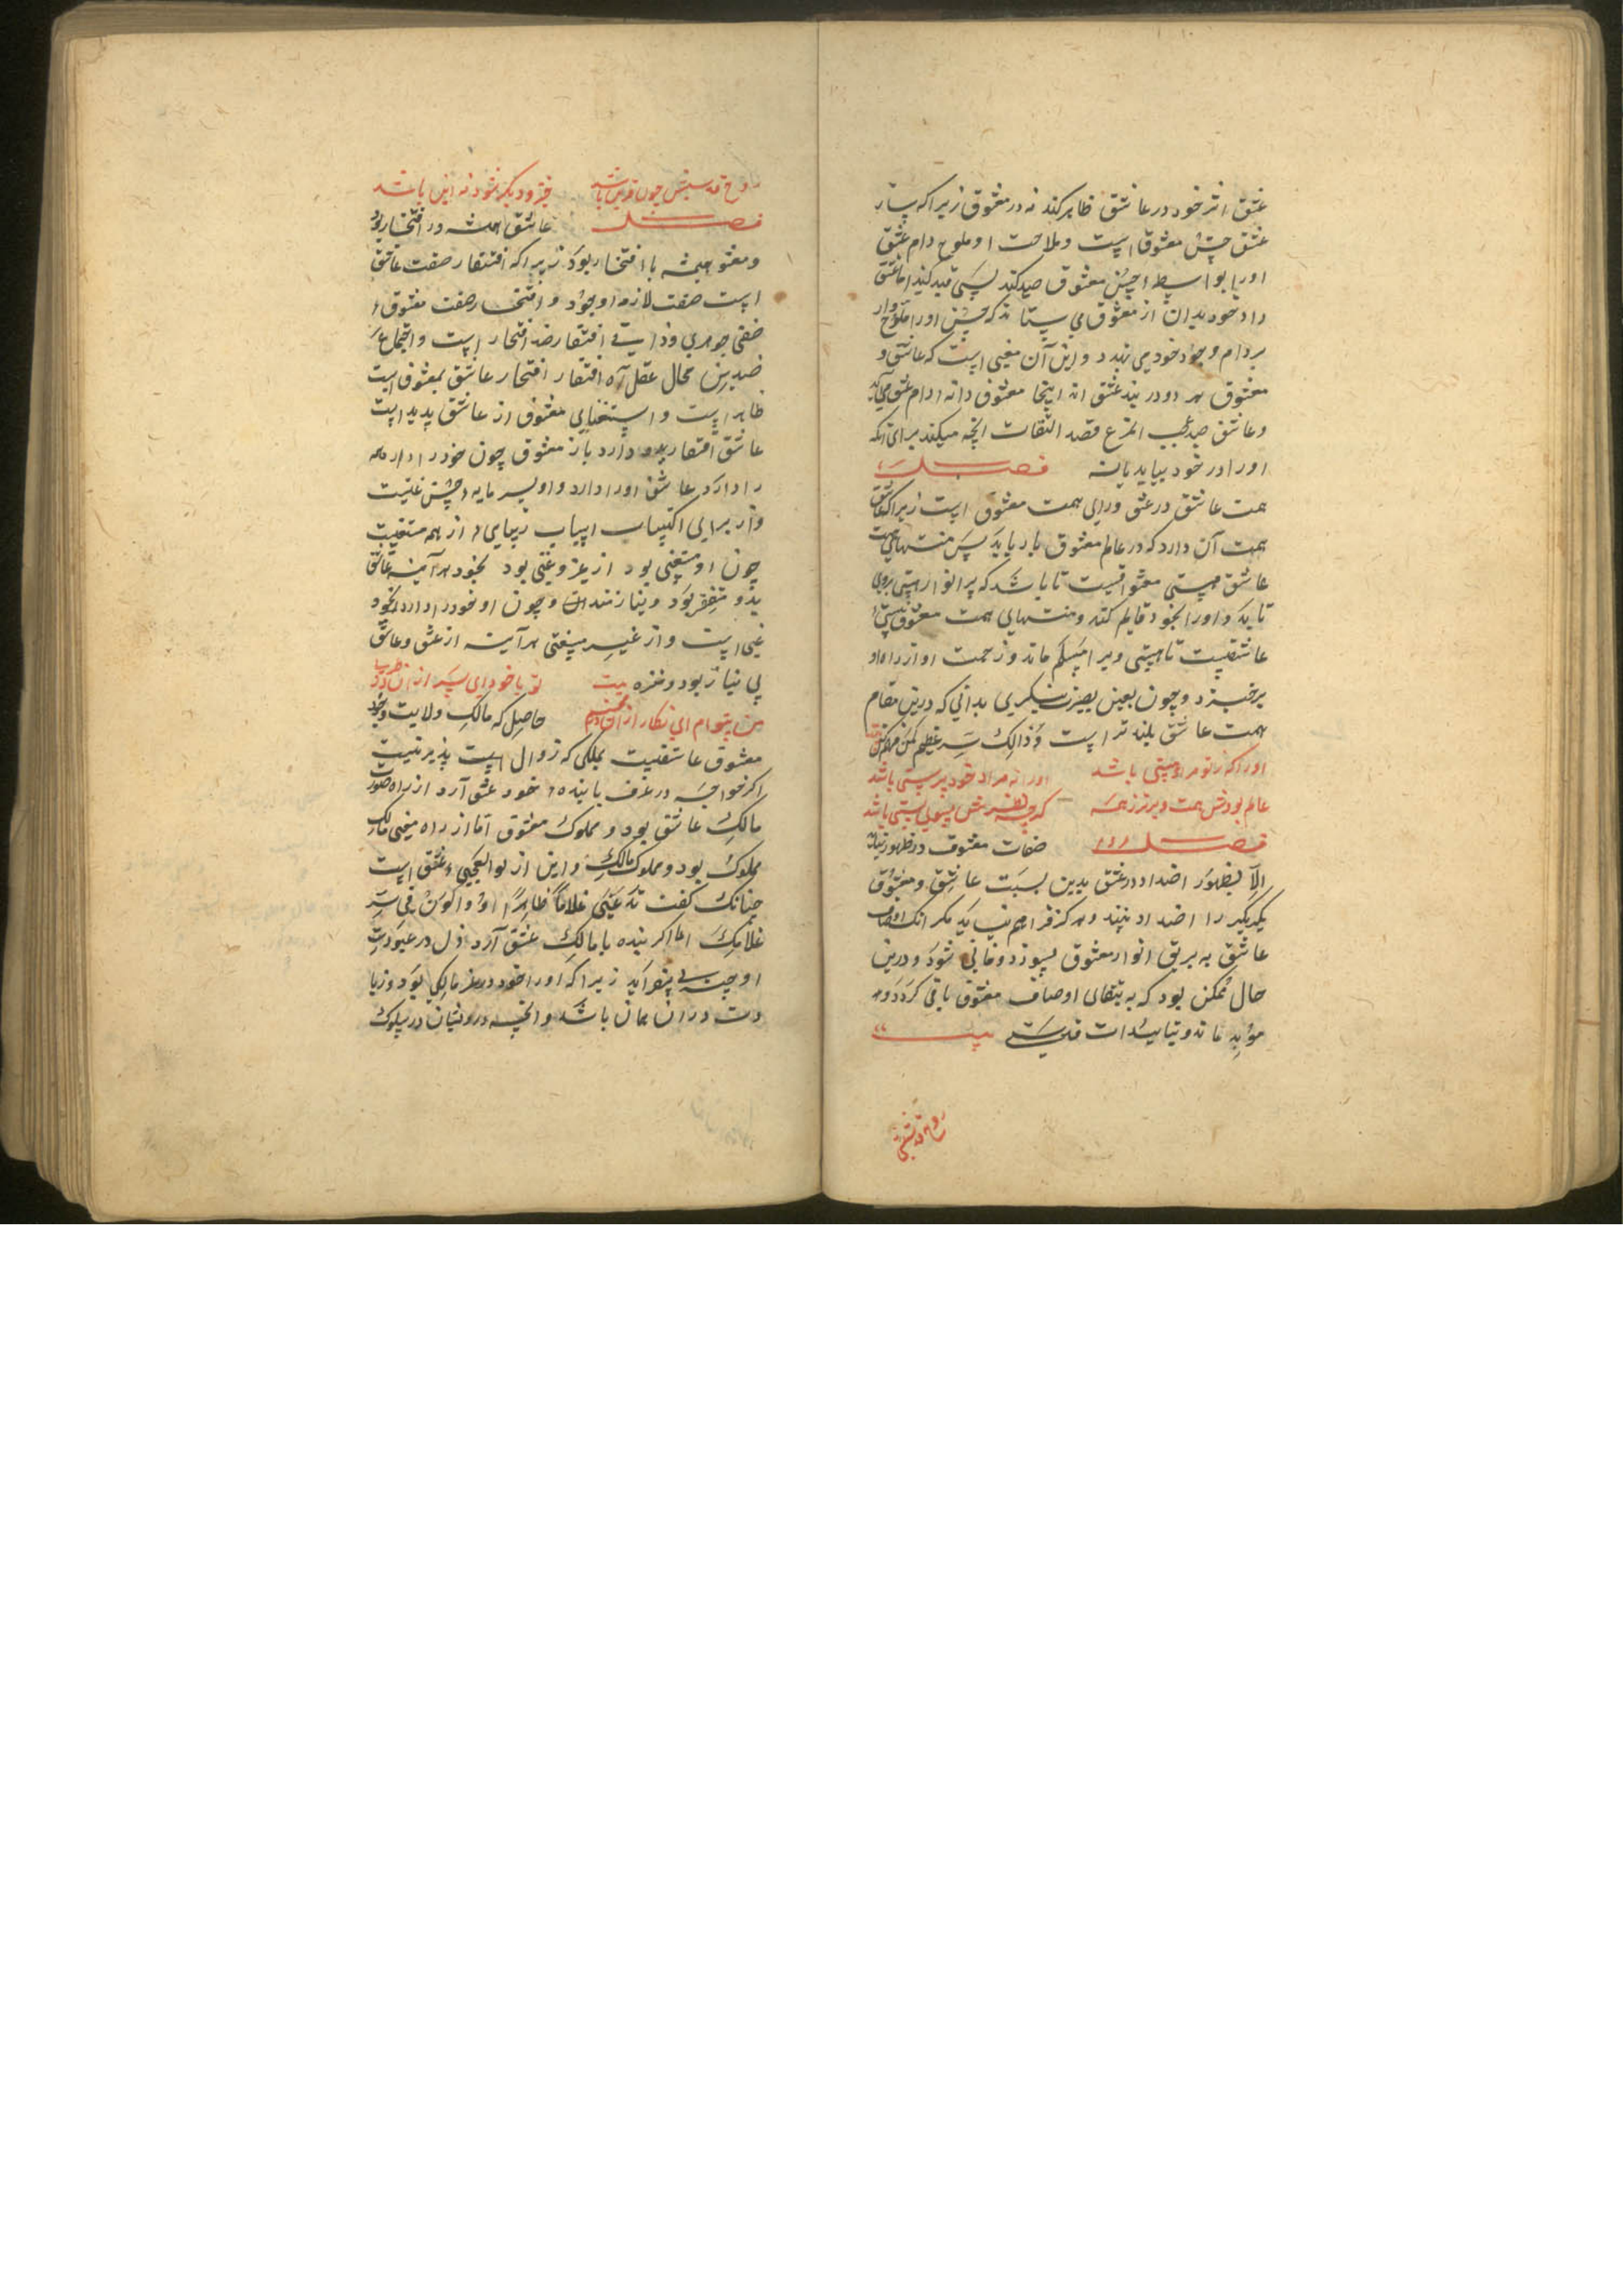 عشق اثر خود در عاشق ظاهر کند نه در معشوق زیرا که
عشق حسن معشوق است و ملاحت او ملوح دام عشق
او را بواسطه حسن معشوق صید کند پس قید کند اما عشق
داد خود بدان از معشوق می ستاند که حسن او را
بر دام وجود خود می نهد و این آن معنی است که عاشق و
معشوق هر دو در بند عشق اند اینجا معشوق دانه دام عشق می آید
و عاشق صید قصد التفات انچه میکند برای آنکه
او را در خود بیابد یا نه فصل
همت عاشق در عشق ورای همت معشوق است زیرا که عاشق
همت آن دارد که در عالم معشوق بار یابد پس منتهای همت
عاشق هستی معشوقست تا باشد که پر انوار هستی بروی
تابد و او را بخود قایم کند و منتهای همت معشوق نیستی
عاشقیست تا هستی ویرا مسلم ماند و زحمت او از راه او
برخیزد و چون بعین بصیرت بنگری بدانی که درین مقام
همت عاشق بلند تر است و ذالک سر عظیم
او را که ز تو مراد هستی باشد او را نه مراد خود پرستی باشد
عالم بودش همت و برتر ز همه گر چه بسوی پستی باشد
فصل صفات معشوق در ظهور نیاید
الا بظهور اضداد در عشق بدین نسبت عاشق و معشوق
یکدیگر را اضداد بینند و هرگز فراهم نیایند مگر آنک اوصاف
عاشق به بریق انوار معشوق بسوزد و فانی شود و درین
حال ممکن بود که به بقای اوصاف معشوق باقی گردد و
موید ماند و بتاییدات قدسی بیت
روح قدسیش
روح قدسیش چون قرین باشد جز و دیگر نشود نه این باشد
فصل عاشق همیشه در افتقار بود
و معشوق همیشه با افتخار بود زیرا که افتقار صفت عاشق
است صفت لازمه او بود و افتخار صفت معشوق
صفتی جوهری و ذاتی افتقار ضد افتخار است و اجتماع
ضدین محال عقل افتقار افتخار عاشق بمعشوق است
ظاهر است و استغنای معشوق از عاشق پدید است
عاشق افتقار بدو دارد باز معشوق چون خود را دارد همه
را دارد عاشق او را دارد و او بسرمایه حسن غنیست
و از برای اکتساب اسباب زیبایی از همه مستغنیست
چون او مستغنی بود از عز و غنی بود بخود هر آینه عاشق
بدو مفتقر بود و نیازمند و چون او خود را دارد بخود
غنی است و از غیر مستغنی هر آینه از عشق و عاشق
بی نیاز بود و غره بیت تو با خودی ای پسر از آن
من بی توام ای نگار از آن حاصل که مالک ولایت وجود
معشوق عاشقیست بملکی که زوال پذیر نیست
اگر خواجه در عرف با بنده خود عشق آرد از راه صورت
مالک عاشق بود و مملوک معشوق اما از راه معنی مالک
مملوک بود و مملوک مالک و این از بوالعجبی عشق است
چنانک گفت غلاما ظاهرا و اکون فی سر
غلامک اما اگر بنده با مالک عشق آرد ذل در عبودیت
او زیرا که او را خود در عز مالکی بود و زیا
دت در آن همان باشد و انچه درویشان در سلوک